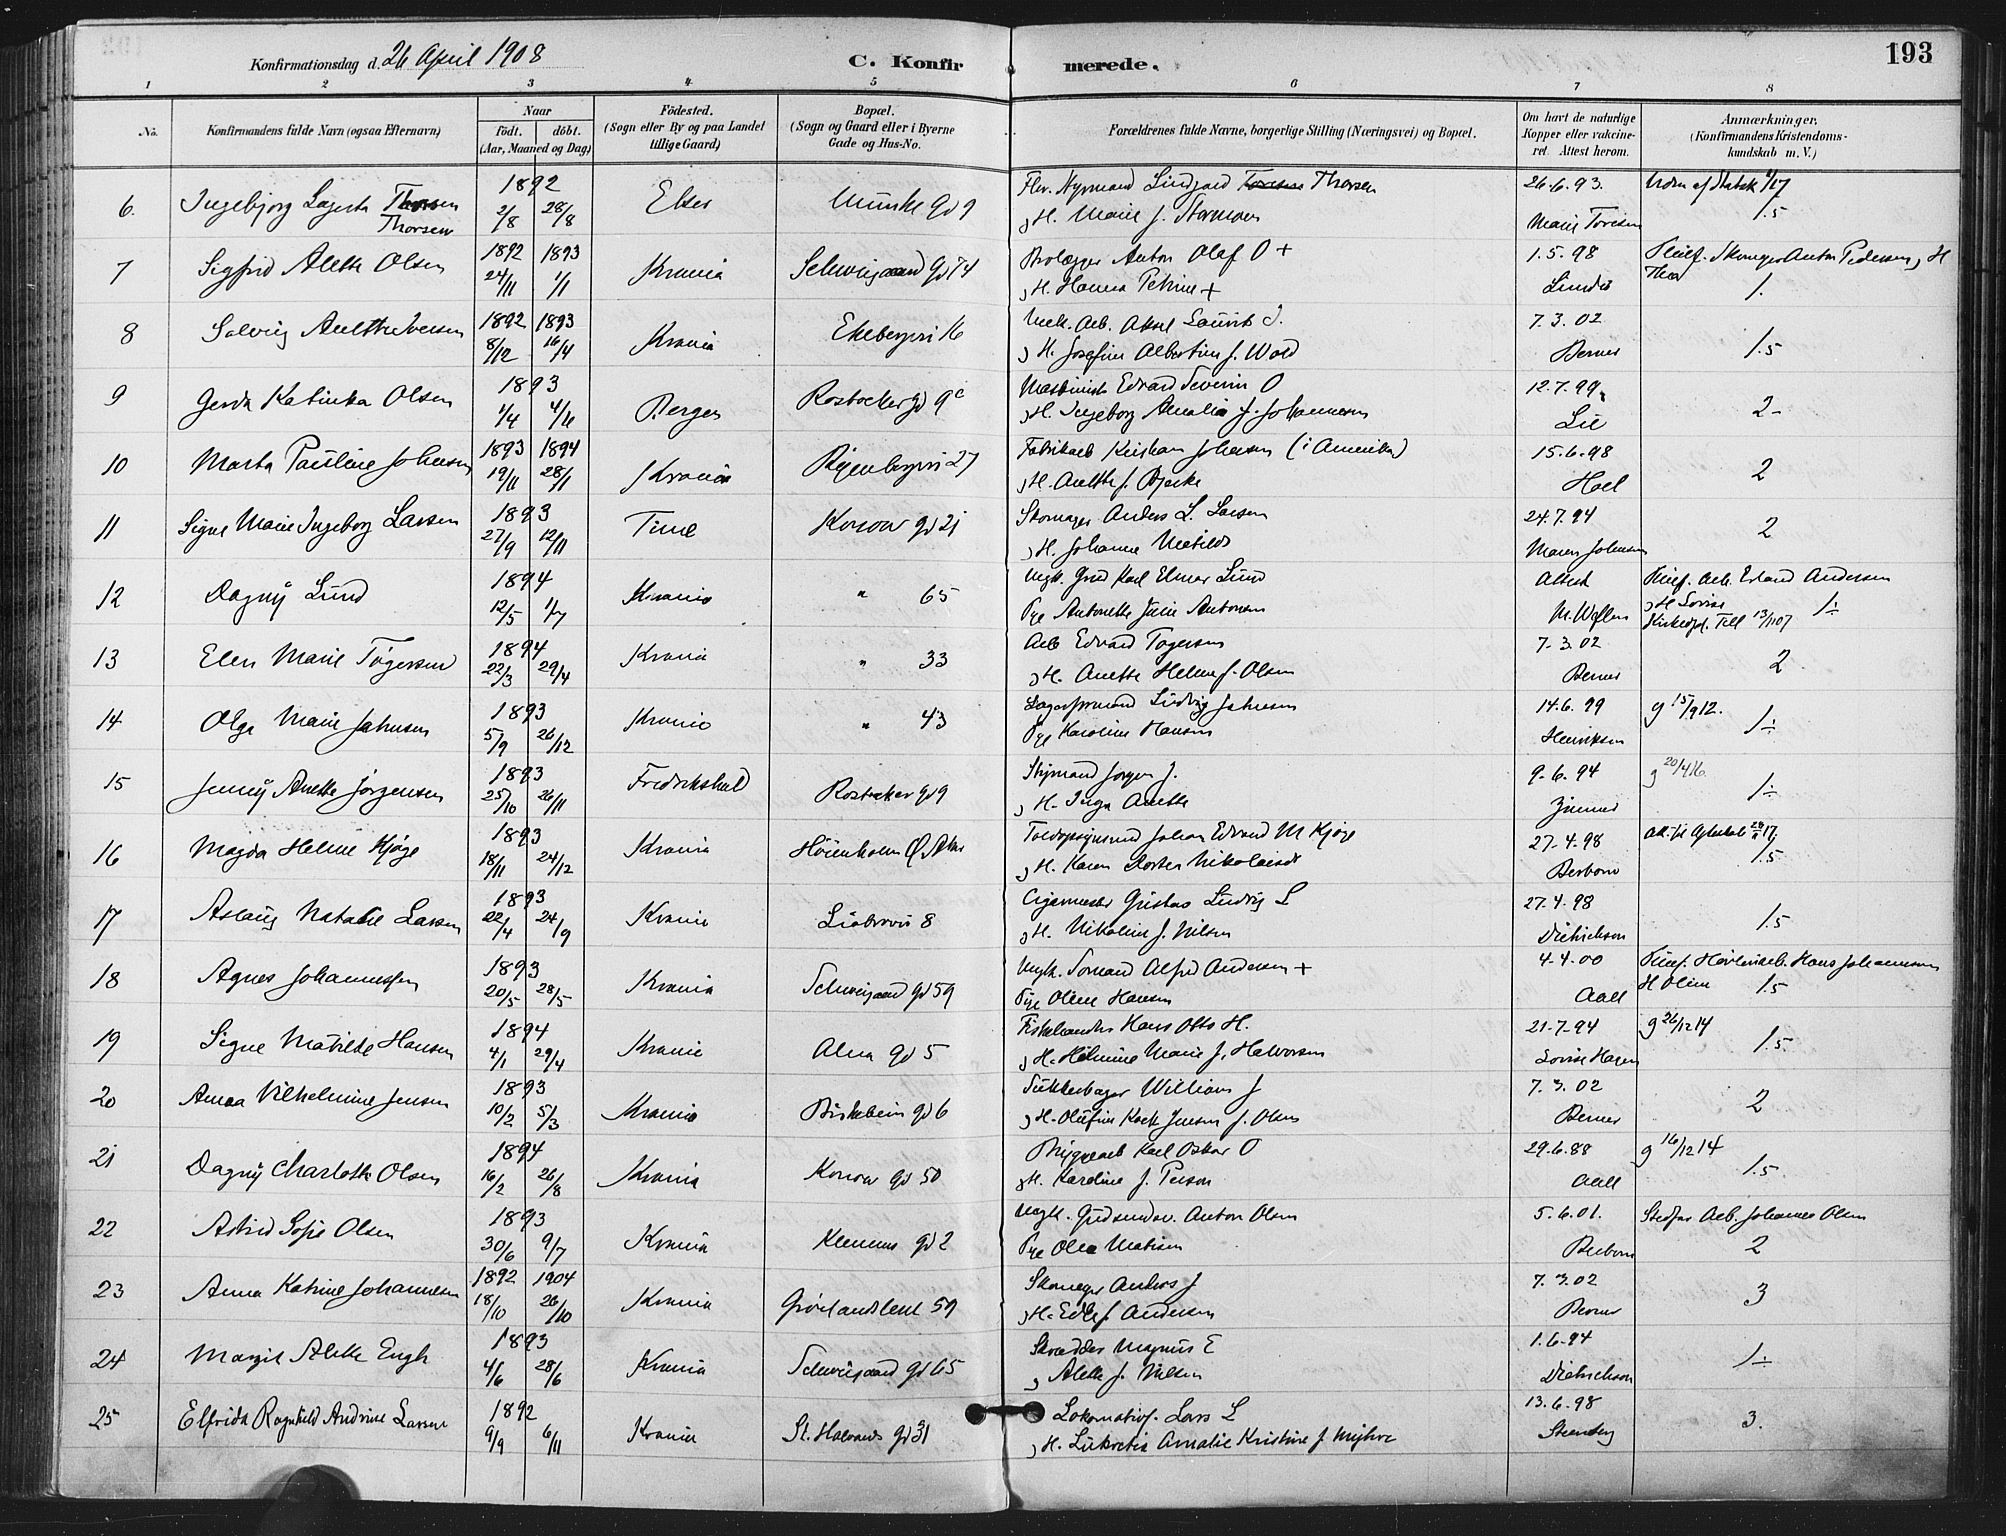 193
Konfirmationsdag d. 26 April 1908 C. Konfirmerede.
1 2 3 4 5 6 7 8
No. Konfirmandens fulde Navn (ogsaa Efternavn) Naar Födested. Bopæl. Forældrenes fulde Navne, borgerlige Stilling (Næringsvei) og Bopæl. Om havt de naturlige Anmærkninger.
födt. döbt. (Sogn eller By og paa Landet (Sogn og Gaard eller i Byerne Kopper eller vakcine- (Konfirmandens Kristendoms-
(Aar, Maaned og Dag) tillige Gaard) Gade og Hus-No. ret. Attest herom. kundskab m. V.)
6. Ingebjorg Lagerta Thorsen 1892 26.6.93.
Thorsen 2/8 28/8 Munke gd 9 H. Marie f. Marie Toresen 1.5
7 Sigfrid Alette Olsen 1892 1893 Krania Schweigaard gd 74 Brolægger Anton Olaf O + 1.5.98 Pleief. Skomager Anton Pedersen, H
24/11 1/1 H. Hanna Petrine + Thea 1.
8 Solveig Anette Iversen 1892 1893 Krania Ekebergvei 16 Mek. Arb. Aksel Laurits I. 7.3.02
8/12 16/4 H. Josefine Albertine f. Wold Berner 1.5
9 Gerda Katinka Olsen 1893 Bergen Rostocker gd 9c Maskinist Edvard Severin O 12.7.99
1/4 4/6 H. Ingeborg Amalia f. Johannesen Lie 2-
10 Marta Pauline Johnsen 1893 1894 Krania 27 Fabrikarb Kristian Johnsen (i Amerika) 15.6.98
19/11 28/1 H. Anette f. Bjerke Hoel 2
11 Signe Marie Ingeborg Larsen 1893 Time Konow gd 21 Skomager Anders L. Larsen 24.7.94
27/9 12/11 H. Johanne Matilde Maren Johnsen 2
12 Dagny Lund 1894 Krania " 65 Ungk. Karl Elmer Lund Attest Pleief. Arb. Erland Andersen
12/5 1/7 Pige Antonette Julie Antonsen H Lovise 1÷
13/1107
13 Elen Marie Tögersen 1894 Krania " 33 Arb Edvard Togersen 7-3.02
22/3 29/4 H. Anette Helene f. Olsen Berner 2
14 Olga Marie Johnsen 1893 Krania " 43 Ludvig Johnsen 14.6.99 g 15/912.
5/9 26/12 Pige Karoline Hansen Henriksen 1÷
15 Jenny Anette Jörgensen 1893 Fredrikshald Rostocker gd 9 Jorgen J. 9-6.94 g 20/416.
25/10 26/11 H. Inga Anette 1÷
16 Magda Helene Kjöge 1893 Krania Höienholm Johan Edvard M Kjöge 27-4.98
18/11 24/12 H. Karen Dortea Nikolaisdt 1.5
17 Aslaug Natalie Larsen 1893 Krania 8 Gustav Ludvig L 27.4.98
22/4 24/9 H. Nikoline f. Nilsen Dietrichson 1.5
18 Agnes Johannessen 1893 Krania Schweigaard gd 59 Ungk. Alfred Andersen + 4-4.00 Hans Johannesen
20/5 28/5 Pige Oline Hansen Aall H Oline 1.5
19 Signe Matilde Hansen 1894 Krania Alna gd 5 Fiskehandler Hans Otto H. 21-7-94 g 26/1214
4/1 29/4 H. Helmine Marie f. Halvorsen Lovise Hagen 1.5
20 Anna Vilhelmine Jensen 1893 Krania Birkebein gd 6 Sukkerbager William J 7.3.02
10/2 5/3 H. Olufine Koch Jensen f. Olsen Berner 2
21 Dagny Charlotte Olsen 1894 Krania Konow gd 50 Bryggearb Karl Oskar O 29.6.88 g 16/1214
16/2 26/8 H. Karoline f. Person Aall 1.5
22 Astrid Sofie Olsen 1893 Krania Klemens gd 2 Ungk. Anton Olsen 5.6.01. Stedfar Arb. Johannes Olsen
30/6 9/7 Pige Olea Matisen 2
23 Anna Katrine Johannesen 1892 1904 Krania Grönlandsleret 59 Skomager Anders J 7.3.02
18/10 26/10 H. Edle f. Andersen Berner 3
24 Margit Alette Engh 1893 Krania Schweigaard gd 65 Skrædder Magnus E 1.6.94
4/6 28/6 Alette f. Nilsen Dietrichson 1÷
25 Elfrida Ragnhild Andrine Larsen 1892 Krania St. Halvards gd 31 Lokomotivf. Lars L 13.6.98
9/9 6/11 H. Lukretia Amalie Kristine f. Stensby 3.